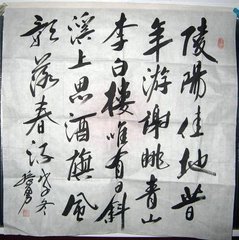 陵陽佳地昔
年游謝眺青山
李白樓唯有日斜
溪上思酒旗風
影落春流 戊子冬